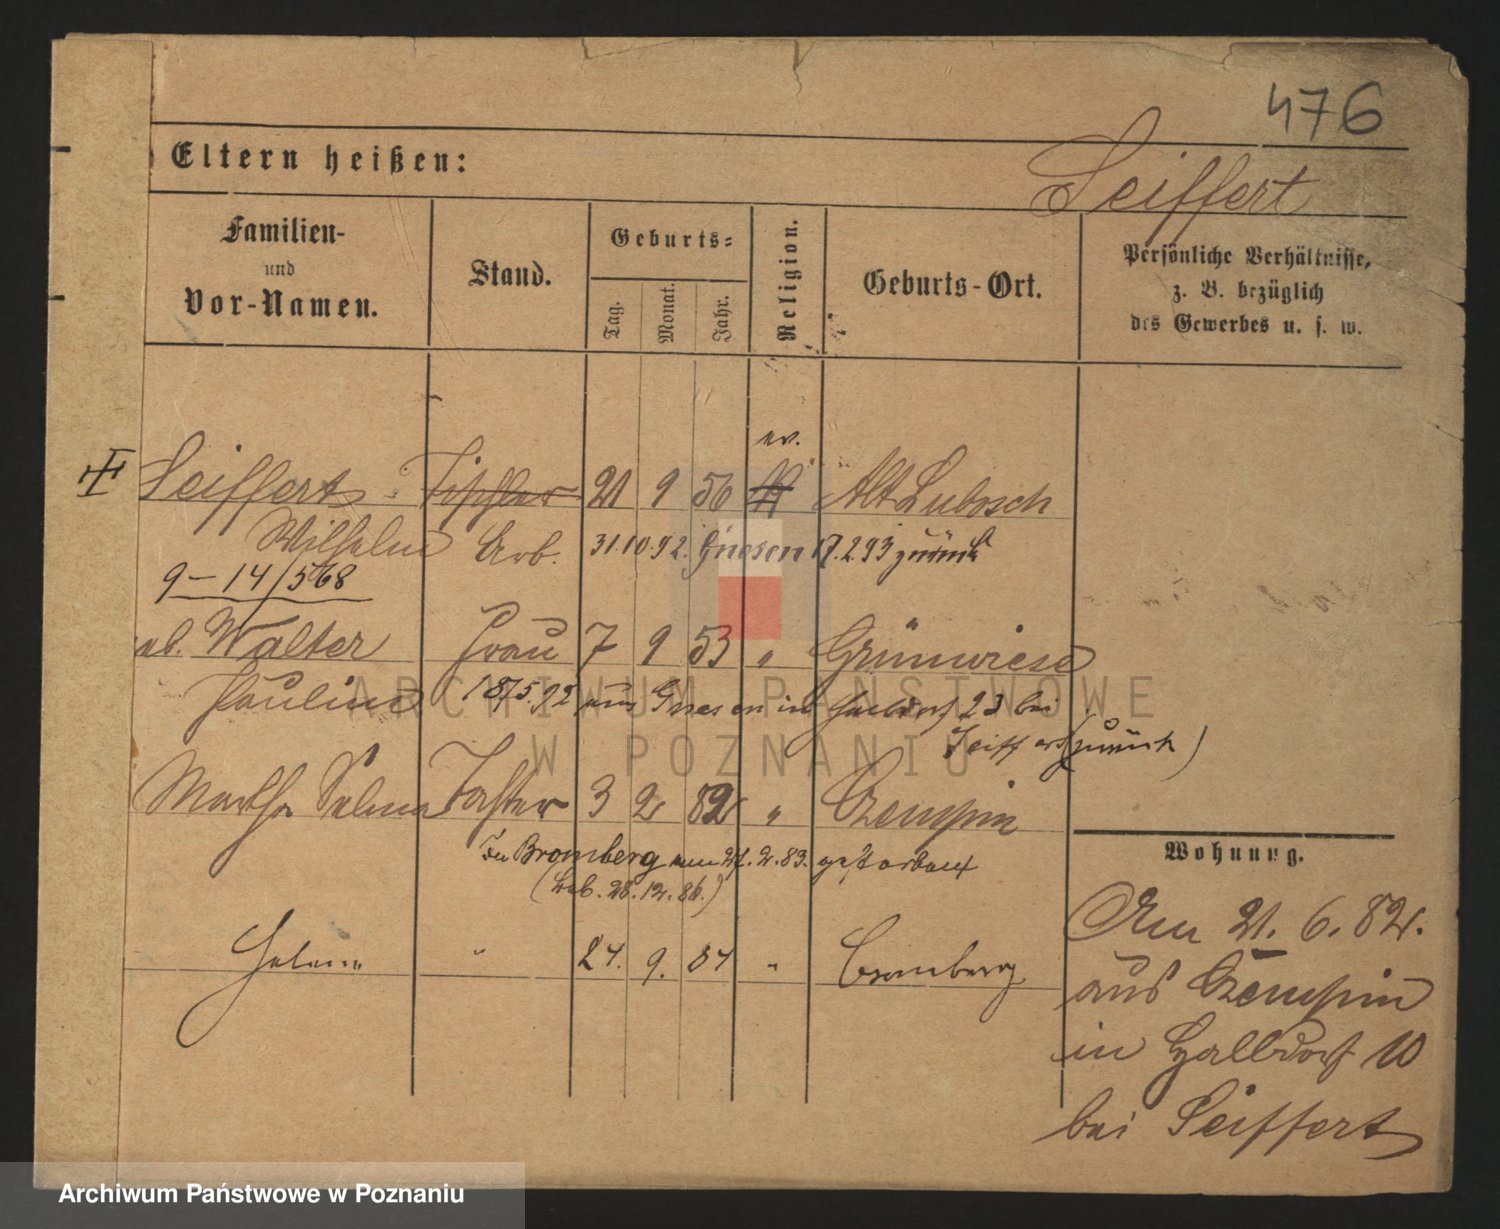 476
Eltern heißen:
Seiffert
Familien-
und
Vor-Namen.
Stand.
Geburts-
Tag.
Monat.
Jahr.
Religion.
Geburts-Ort.
Persönliche Verhältnisse,
z. B. bezüglich
des Gewerbes u. s. w.
ev.
Seiffert Tischler 21 9 56 Alt Lubosch
Wilhelm Arb. 31.10.92. Gnesen 17.2.93 zurück
9-14/568
Walter Frau 7 9 53 " Grünwiese
Pauline 18/5.92 aus Gnesen in Halldorf 23 bei
Seiffert zurück)
Martha Selma Tochter 3 2 82 " Czempin
In Bromberg am 27.2.83. gestorben
28.12.86.)
Helene " 24. 9. 84 " Bromberg
Wohnung.
Am 21. 6. 82.
aus Czempin
in Halldorf 10
bei Seiffert
ARCHIWUM PAŃSTWOWE
W POZNANIU
Archiwum Państwowe w Poznaniu